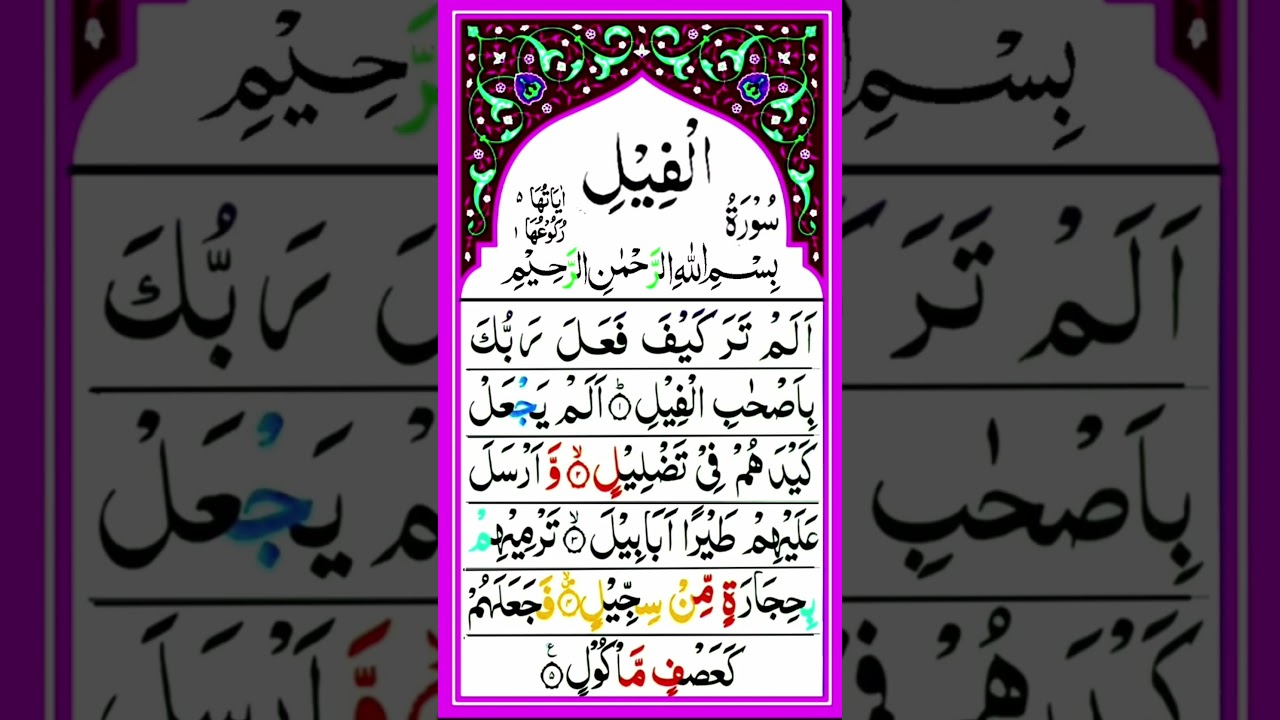 الْفِيْلِ
سُوْرَةُ
اٰيَاتُهَا ۵
رُكُوْعُهَا ۱
بِسْمِ اللّٰهِ الرَّحْمٰنِ الرَّحِيْمِ
اَلَمْ تَرَ كَيْفَ فَعَلَ رَبُّكَ
بِاَصْحٰبِ الْفِيْلِؕ۝۱ اَلَمْ يَجْعَلْ
كَيْدَهُمْ فِيْ تَضْلِيْلٍۙ۝۲ وَّ اَرْسَلَ
عَلَيْهِمْ طَيْرًا اَبَابِيْلَۙ۝۳ تَرْمِيْهِمْ
بِحِجَارَةٍ مِّنْ سِجِّيْلٍ۪ۙ۝۴ فَجَعَلَهُمْ
كَعَصْفٍ مَّاْكُوْلٍ۝۵ ع